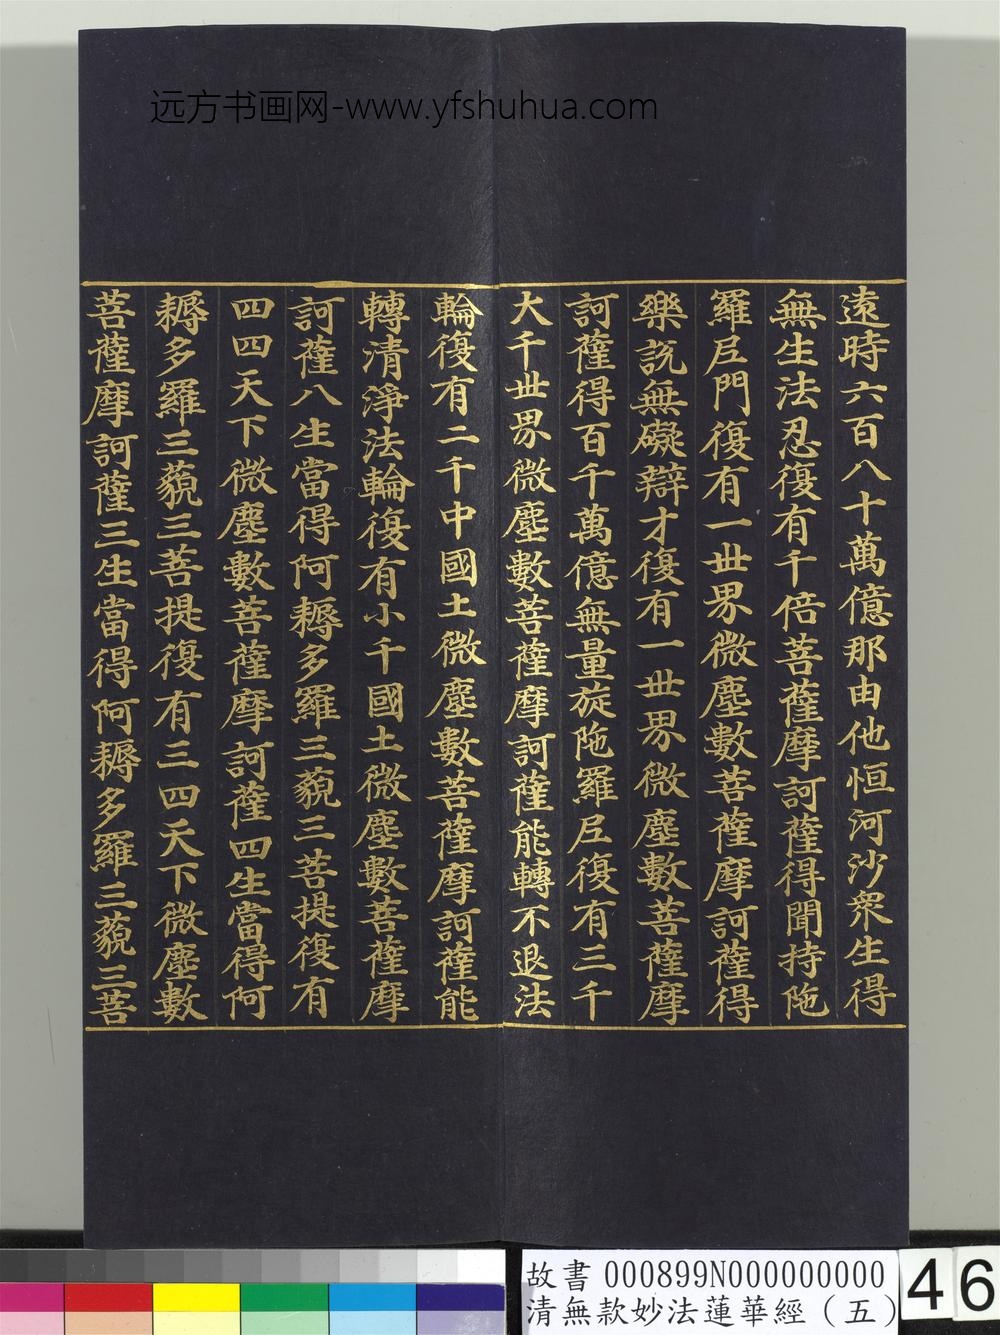 远方书画网-www.yfshuhua.com
遠時六百八十萬億那由他恒河沙衆生得
無生法忍復有千倍菩薩摩訶薩得聞持陁
羅尼門復有一世界微塵數菩薩摩訶薩得
樂說無礙辯才復有一世界微塵數菩薩摩
訶薩得百千萬億無量旋陁羅尼復有三千
大千世界微塵數菩薩摩訶薩能轉不退法
輪復有二千中國土微塵數菩薩摩訶薩能
轉清淨法輪復有小千國土微塵數菩薩摩
訶薩八生當得阿耨多羅三藐三菩提復有
四四天下微塵數菩薩摩訶薩四生當得阿
耨多羅三藐三菩提復有三四天下微塵數
菩薩摩訶薩三生當得阿耨多羅三藐三菩
故書 000899N000000000
清無款妙法蓮華經（五）
46